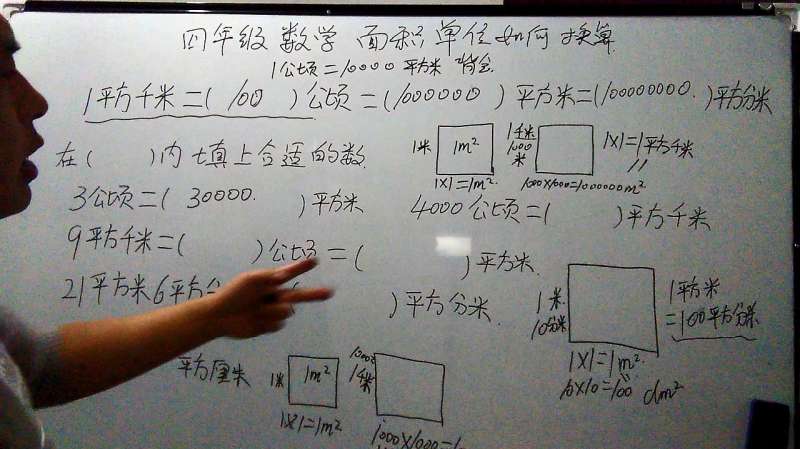 四年级 数学 面积单位如何换算
1公顷=10000平方米
1平方千米=( 100 )公顷=(1000000)平方米=(100000000.)平方分米
在( )内填上合适的数
1米 1m² 1千米 1000米 1×1=1平方千米
1×1=1m² 1000×1000=1000000m²
3公顷=( 30000. )平方米 4000公顷=( )平方千米
9平方千米=( )公顷=( )平方米.
21平方米6平方 )平方分米.
1米. 10分米 1平方米=100平方分米
1×1=1m²
10×10=100 dm²
平方厘米 1米 1m² 1000 1千米
1×1=1m² 1000×1000=1